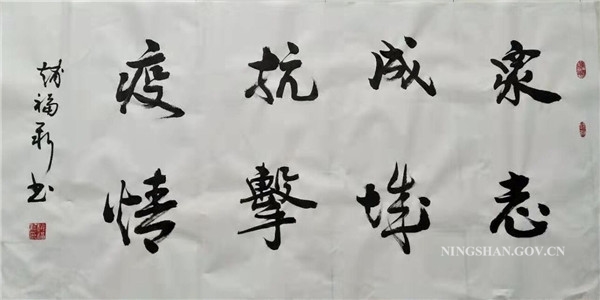 衆志
成城
抗擊
疫情
赵福新书
NINGSHAN.GOV.CN